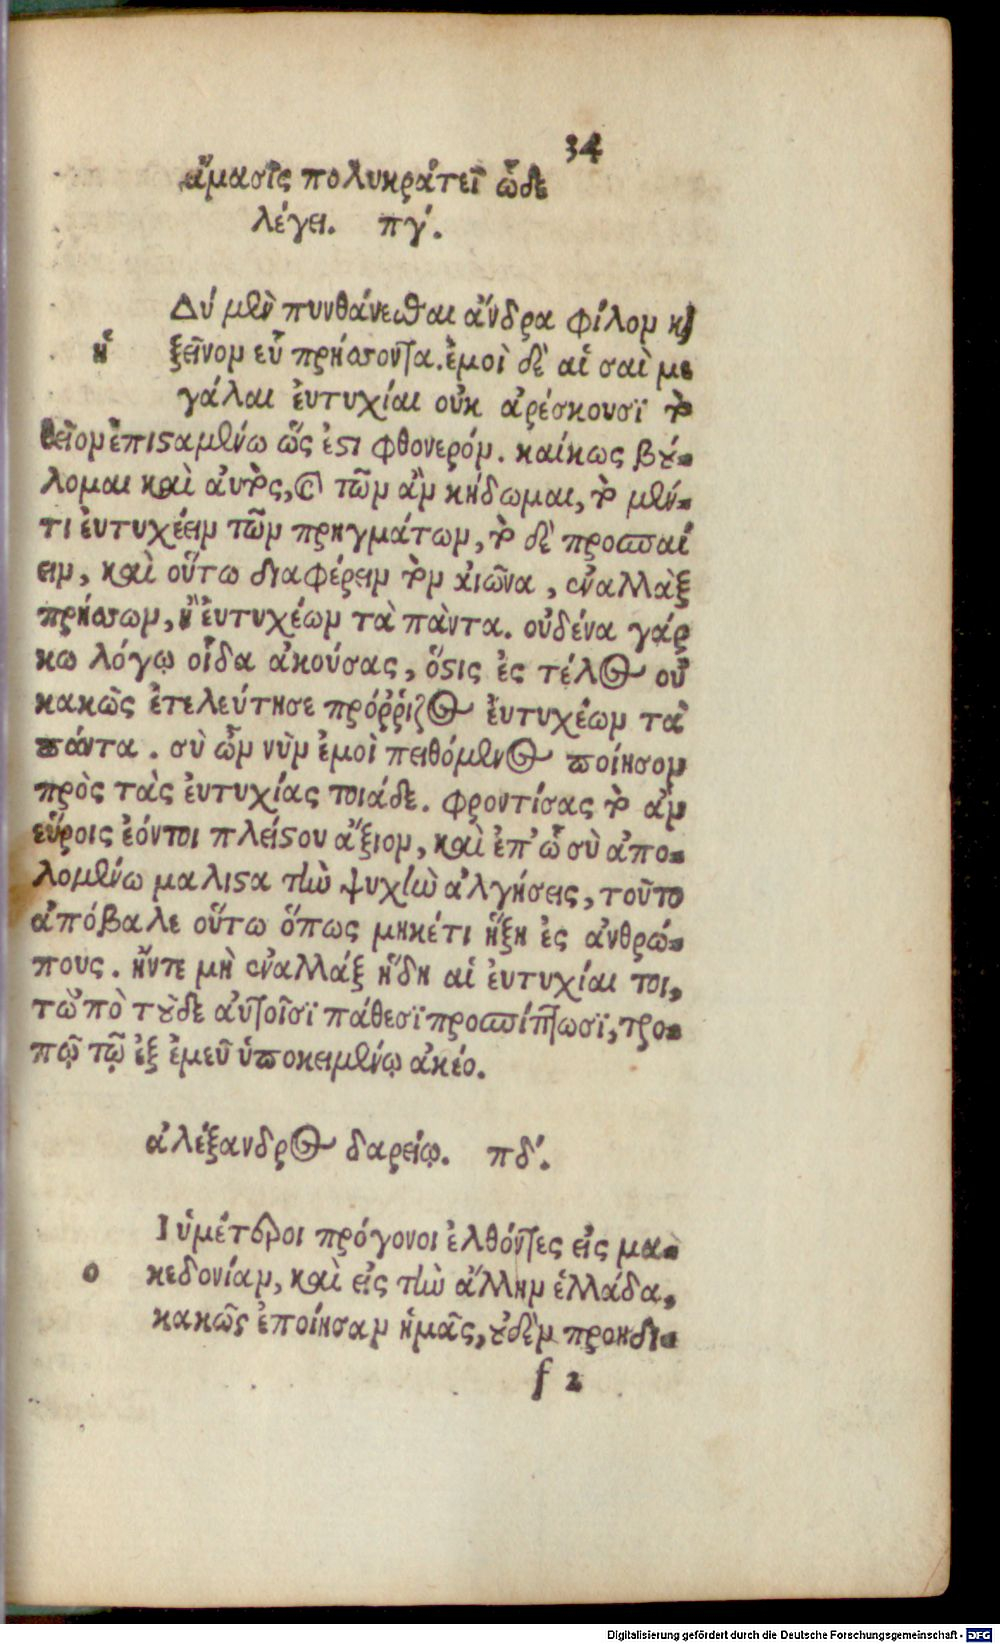 34
ἄμασῖς πολυκράτεῖ ὧδε
λέγει. πγʹ.
Δύ μὲν πυνθάνεσθαι ἄνδρα φίλομ κὶ
ἡ ξεῖνομ εὖ πρήσσοντα. ἐμοὶ δὲ αἱ σαὶ με
γάλαι ἐυτυχίαι οὐκ ἀρέσκουσϊ τὸ
θεῖομ ἐπιϛαμένω ὥς ἐϛι φθονερόμ. καίκως βού-
λομαι καὶ ἀυτὸς, καὶ τῶμ ἂμ κήδωμαι, τὸ μέν-
τι ἐυτυχέειμ τῶμ πρηγμάτωμ, τὸ δὲ προσπαί
ειμ, καὶ οὕτω διαφέρειμ τὸμ ἀιῶνα, ἐναλλὰξ
πρήσσωμ, ἢ ἐυτυχέωμ τὰ πὰντα. οὐδένα γάρ
κω λόγῳ οἶδα ἀκούσας, ὅϛις ἐς τέλος οὐ
κακῶς ἐτελεύτησε πρόῤῥιζος ἐυτυχέωμ τὰ
πάντα. σὺ ὦμ νῦμ ἐμοὶ πειθόμενος ποίησομ
πρὸς τὰς ἐυτυχίας τοιάδε. φροντίσας τὸ ἂμ
εὕροις ἐόντοι πλείϛου ἄξιομ, καὶ ἐπ’ ᾧ σὺ ἀπο-
λομένω μαλιϛα τὴν ψυχὴν ἀλγήσεις, τοῦτο
ἀπόβαλε οὕτω ὅπως μηκέτι ἥξη ἐς ἀνθρώ-
πους. ἤντε μὴ ἐναλλάξ ἤδη αἱ ἐυτυχίαι τοι,
τὠπὸ τοῦδε ἀυτοῖσϊ πάθεσϊ προσπίπτωσϊ, τρο-
πῷ τῷ ἐξ ἐμεῦ ὑποκειμένῳ ἀκέο.
ἀλέξανδρος δαρείῳ. πδʹ.
Ι ὑμέτεροι πρόγονοι ἐλθόντες εἰς μα-
ο κεδονίαμ, καὶ εἰς τὴν ἄλλημ ἑλλάδα,
κακῶς ἐποίησαμ ἡμᾶς, οὐδὲμ προηδι-
f 2
Digitalisierung gefördert durch die Deutsche Forschungsgemeinschaft - DFG